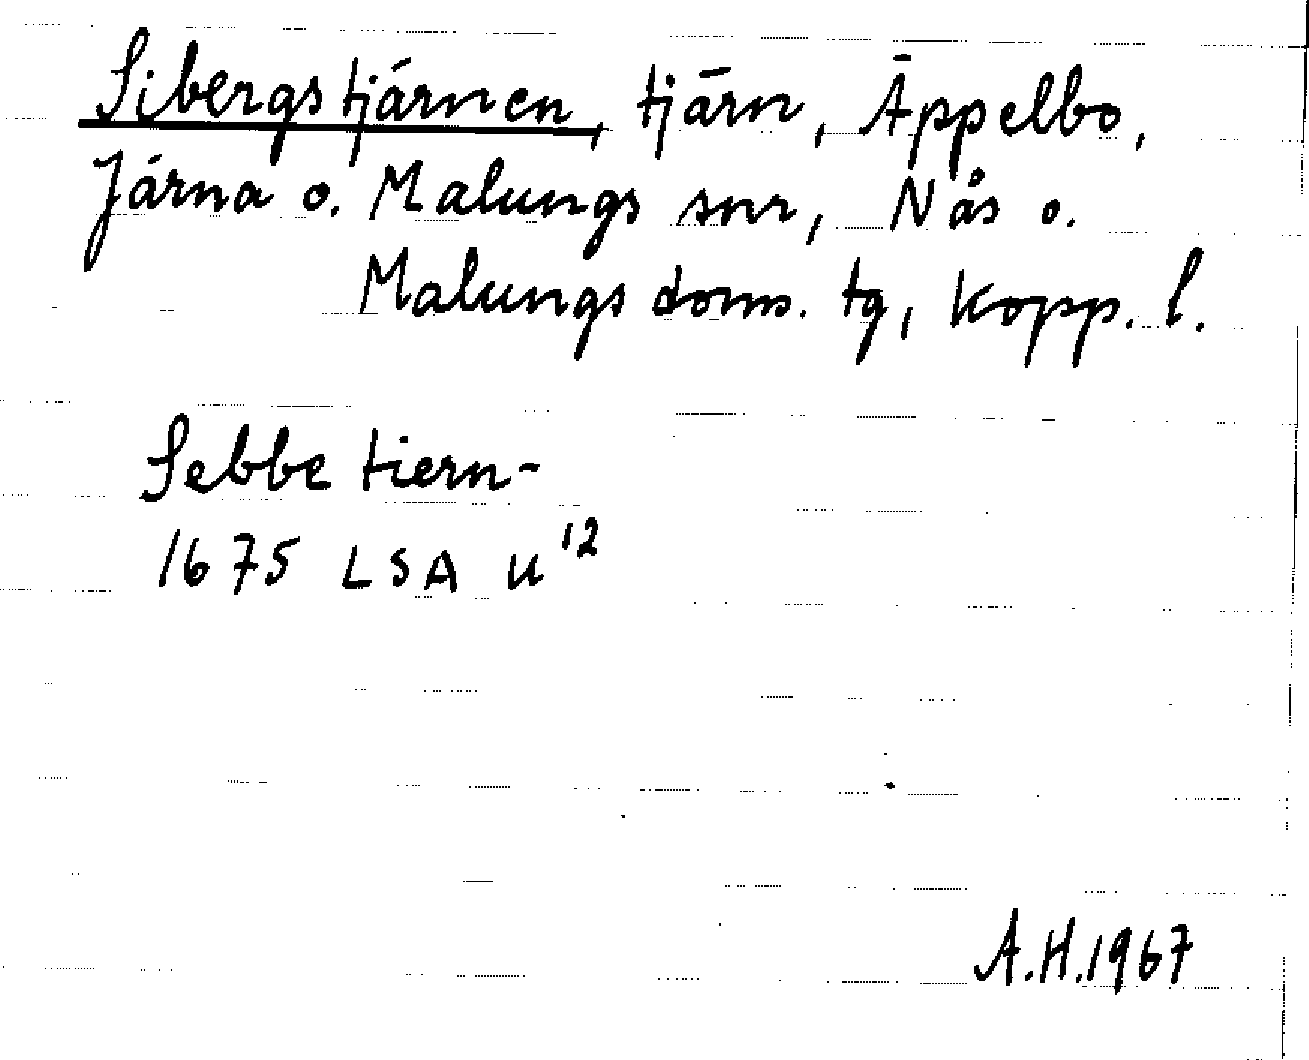 Sibergstjärnen, tjärn, Äppelbo,
Järna o. Malungs snr, Nås o.
Malungs doms. tg, Kopp. l.
Sebbe tiern-
1675 LSA U¹²
A.H.1967